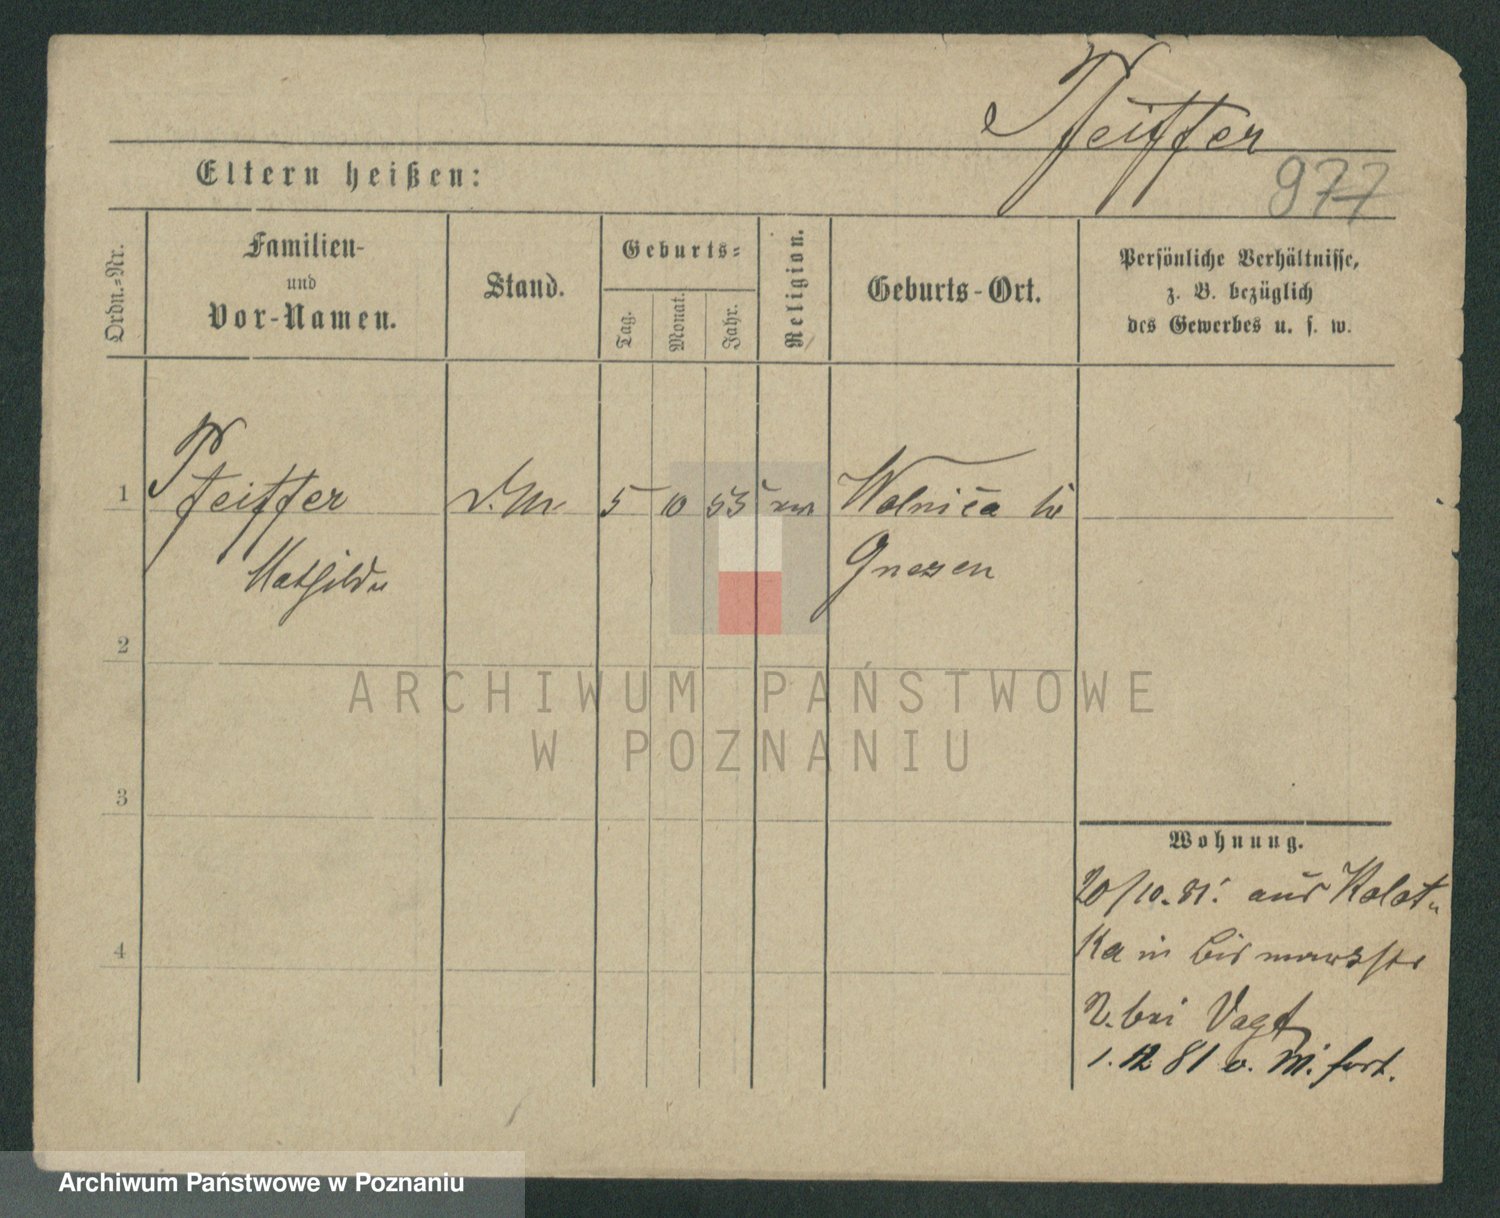 Pfeiffer
977
Eltern heißen:
Ordn.-Nr.
Familien-
und
Vor-Namen.
Stand.
Geburts-
Tag.
Monat.
Jahr.
Religion.
Geburts-Ort.
Persönliche Verhältnisse,
z. B. bezüglich
des Gewerbes u. s. w.
1 Pfeiffer 5 10 53 Wolnica bei
Mathilde Gnesen
2
3
4
ARCHIWUM PAŃSTWOWE
W POZNANIU
Wohnung.
20/10.81. aus
in Bismarckstr
2. bei Vogt
1. 12 81 o. M. fort.
Archiwum Państwowe w Poznaniu